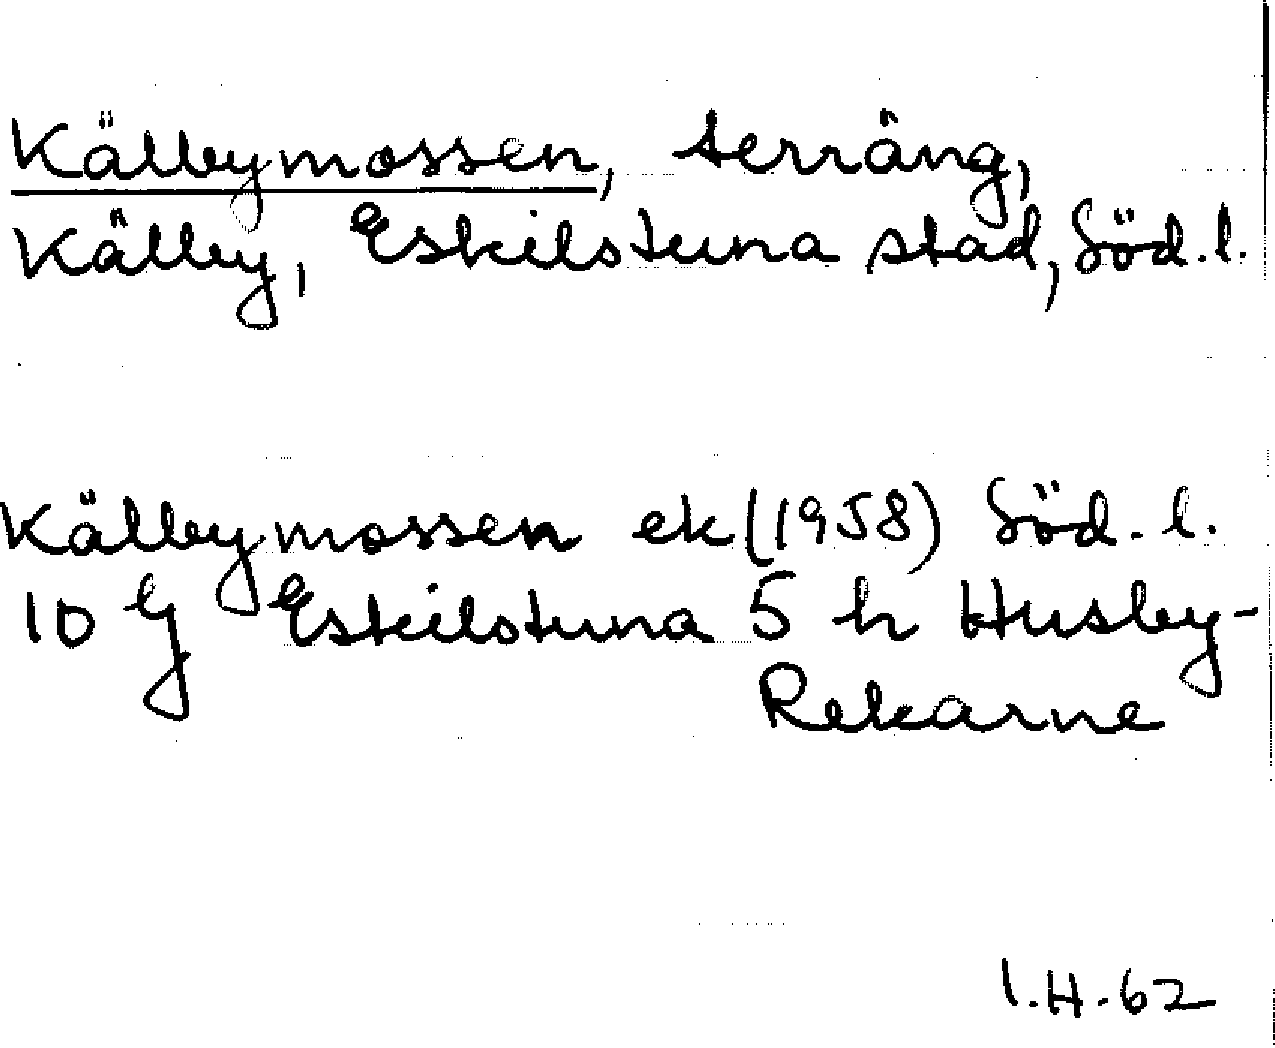 Källbymossen, terräng,
Källby, Eskilstuna stad, Söd. l.
Källbymossen ek (1958) Söd. l.
10 G Eskilstuna 5 h Husby-
Rekarne
I.H. 62